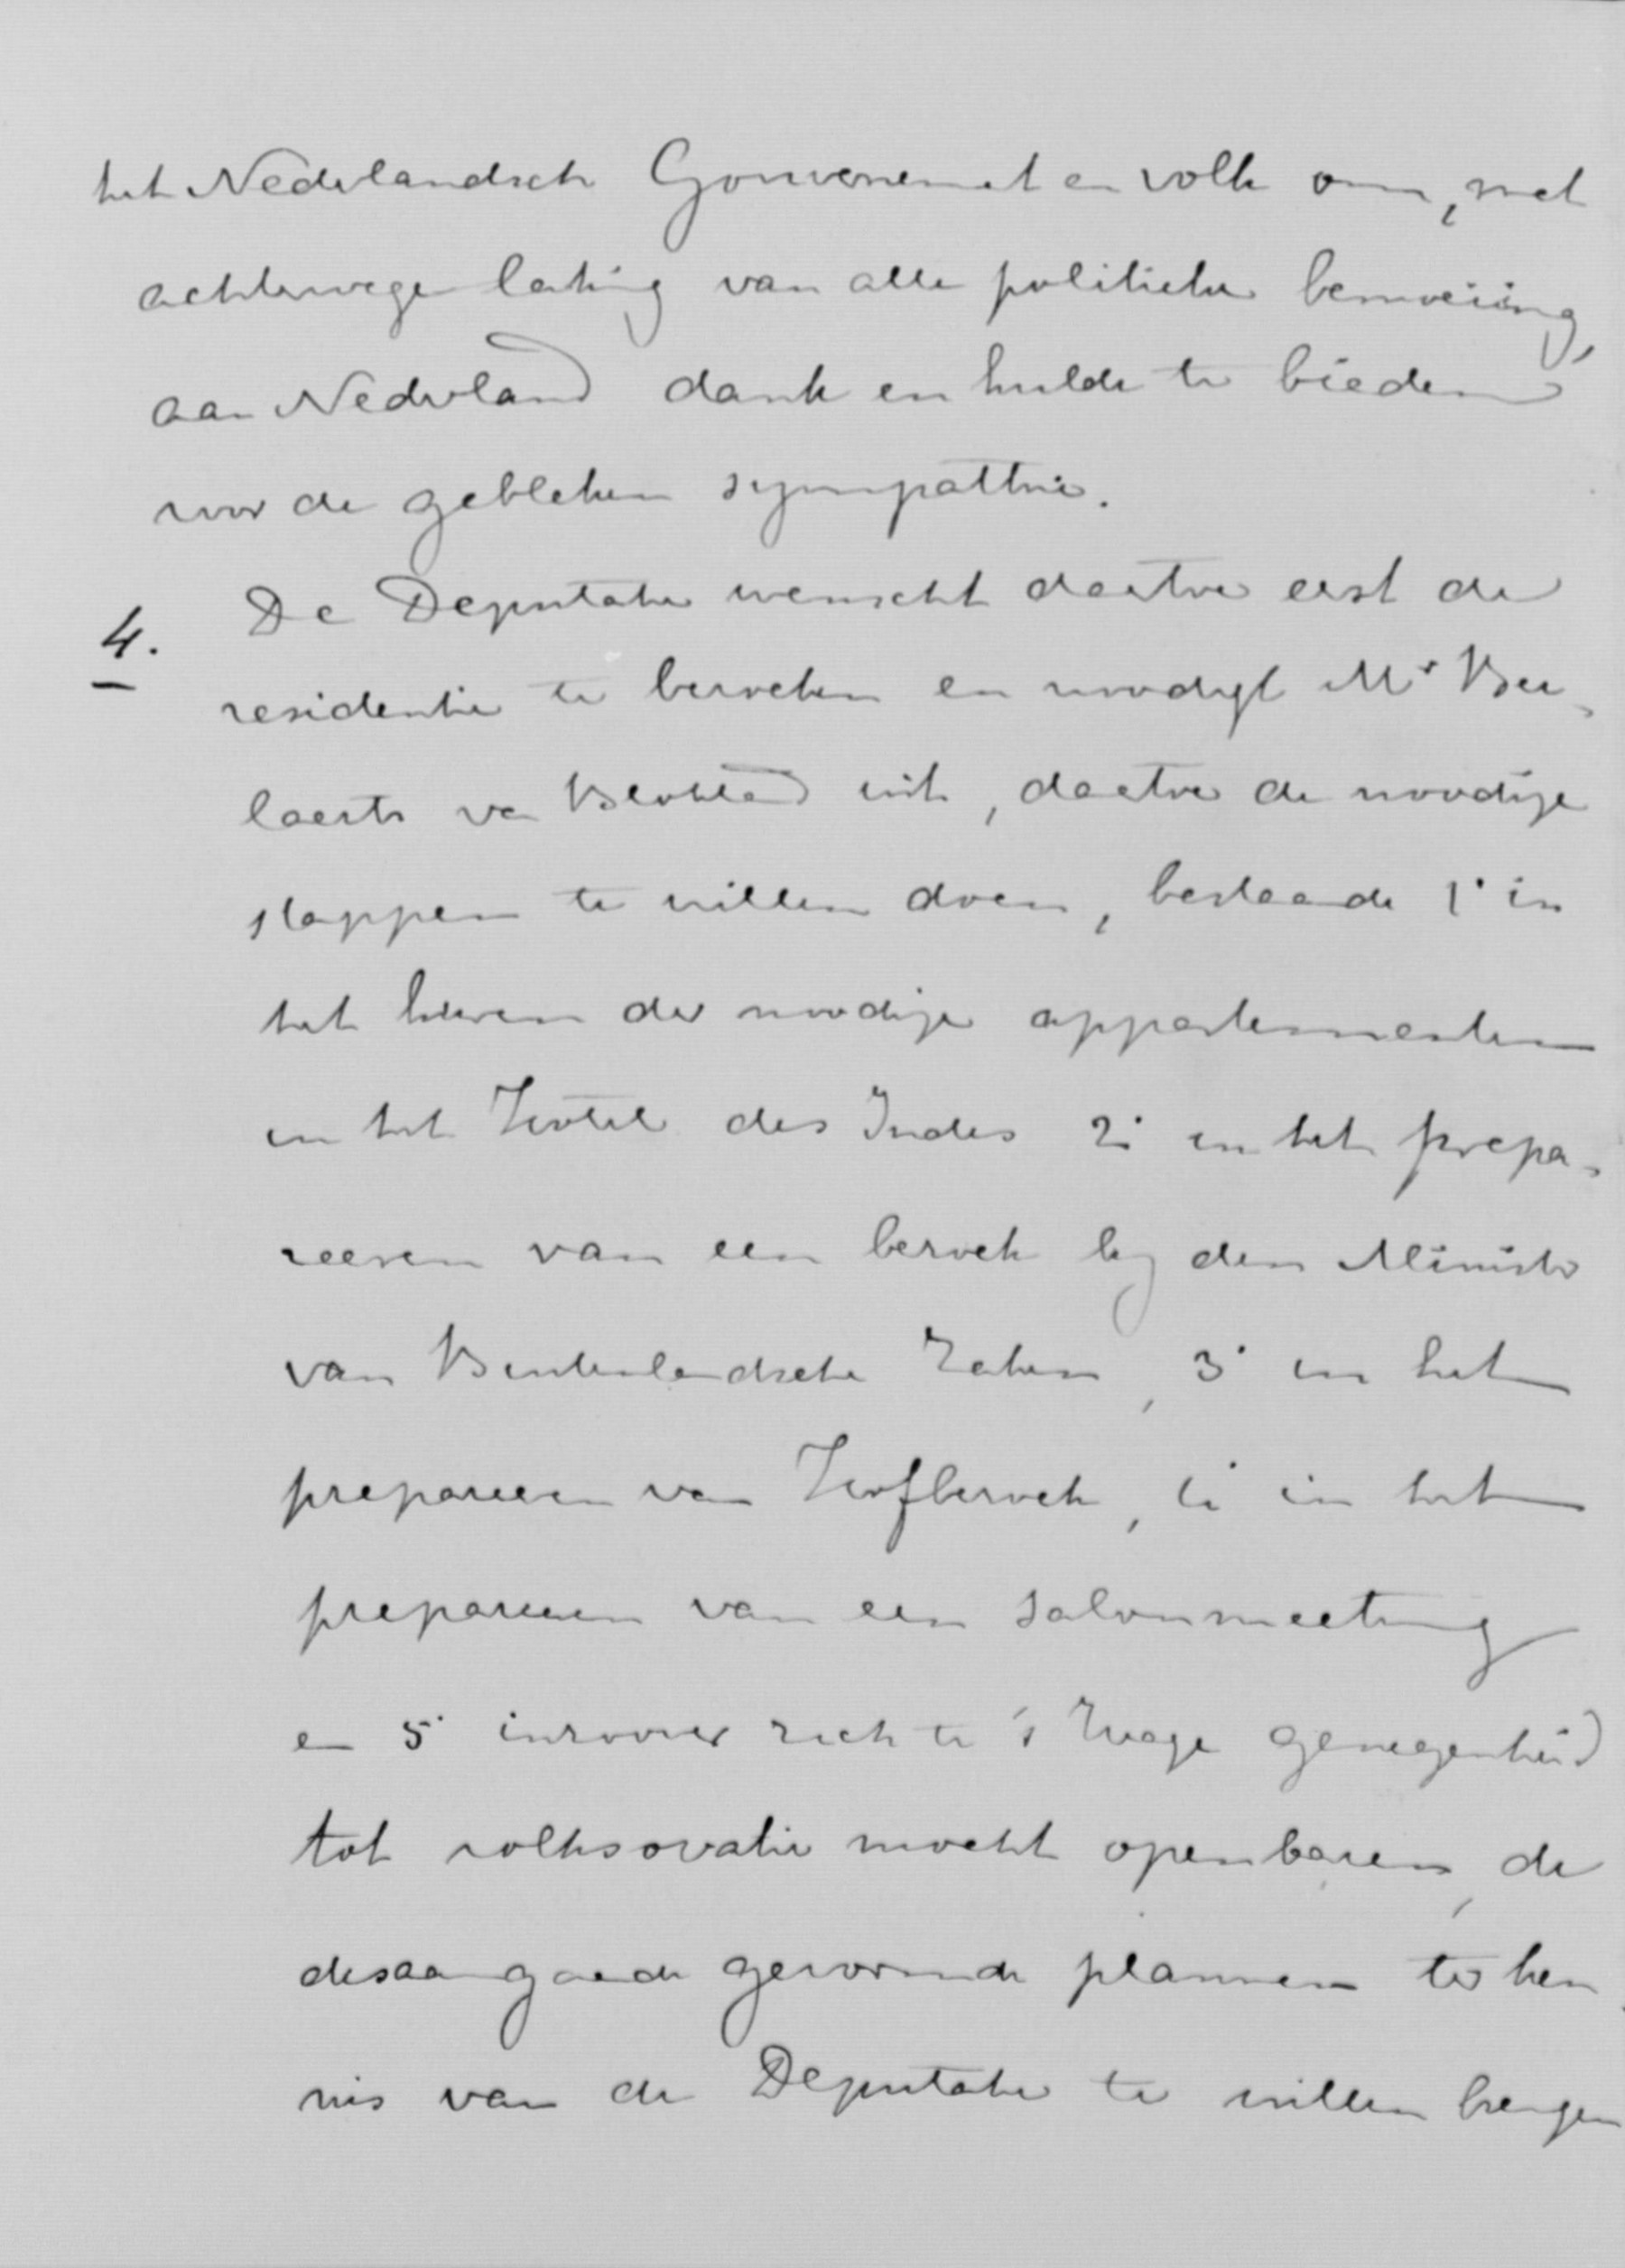 het Nederlandsch Gouvernement en volk om, met
achterwege lating van alle politieke bemoeiing,
aan Nederland dank en hulde te bieden
voor de gebleken sympathie.
4. De Deputatie wenscht daartoe eerst de
residentie te bezoeken en noodigt Mr Bee-
laerts van Blokland uit, daartoe de noodige
stappen te willen doen, bestaande 1° in
het huren der noodige appartementen
in het Hotel des Indes 2° in het prepa-
reeren van een bezoek bij den Minister
van Buitenlandsche Zaken, 3° in het
prepareeren van Hofbezoek, 4° in het
prepareeren van een salonmeeting
en 5° inzoover zich te 's Hage genegenheid
tot volksovatie mocht openbaren, de
desaangaande gevormde plannen ter ken-
nis van de Deputatie te willen brengen